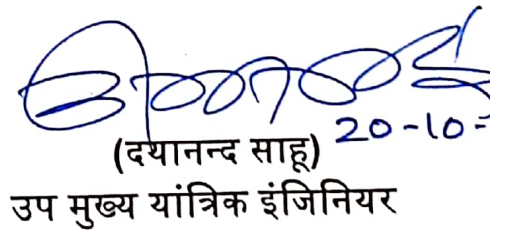 20-10-
(दयानन्द साहू)
उप मुख्य यांत्रिक इंजिनियर